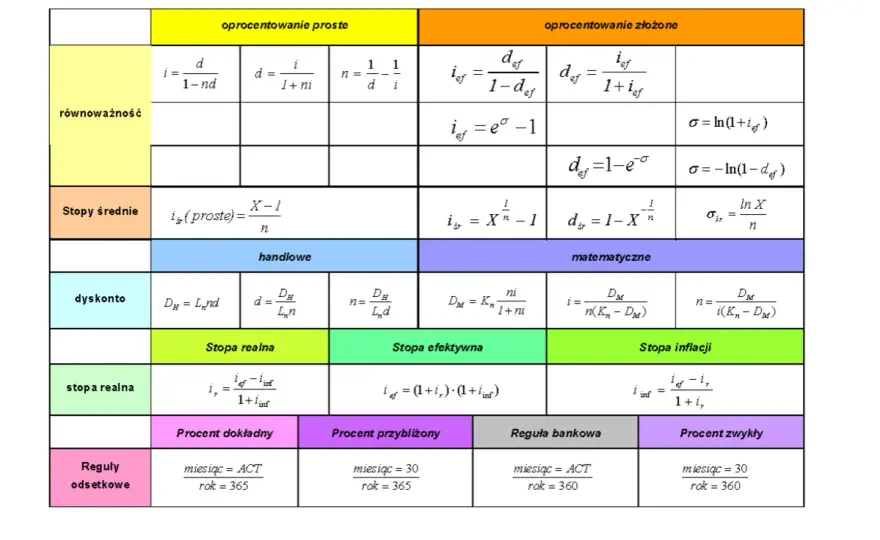 oprocentowanie proste oprocentowanie złożone
równoważność
i = d / (1 − nd) d = i / (1 + ni) n = 1/d − 1/i i_ef = d_ef / (1 − d_ef) d_ef = i_ef / (1 + i_ef)
i_ef = e^σ − 1 σ = ln(1 + i_ef)
d_ef = 1 − e^−σ σ = −ln(1 − d_ef)
Stopy średnie i_śr (proste) = (X − 1) / n i_śr = X^(1/n) − 1 d_śr = 1 − X^(−1/n) σ_śr = ln X / n
handlowe matematyczne
dyskonto D_H = L_n nd d = D_H / (L_n n) n = D_H / (L_n d) D_M = K_n ni / (1 + ni) i = D_M / (n(K_n − D_M)) n = D_M / (i(K_n − D_M))
Stopa realna Stopa efektywna Stopa inflacji
stopa realna i_r = (i_ef − i_inf) / (1 + i_inf) i_ef = (1 + i_r) · (1 + i_inf) i_inf = (i_ef − i_r) / (1 + i_r)
Procent dokładny Procent przybliżony Reguła bankowa Procent zwykły
Reguły
odsetkowe
miesiąc = ACT miesiąc = 30 miesiąc = ACT miesiąc = 30
rok = 365 rok = 365 rok = 360 rok = 360